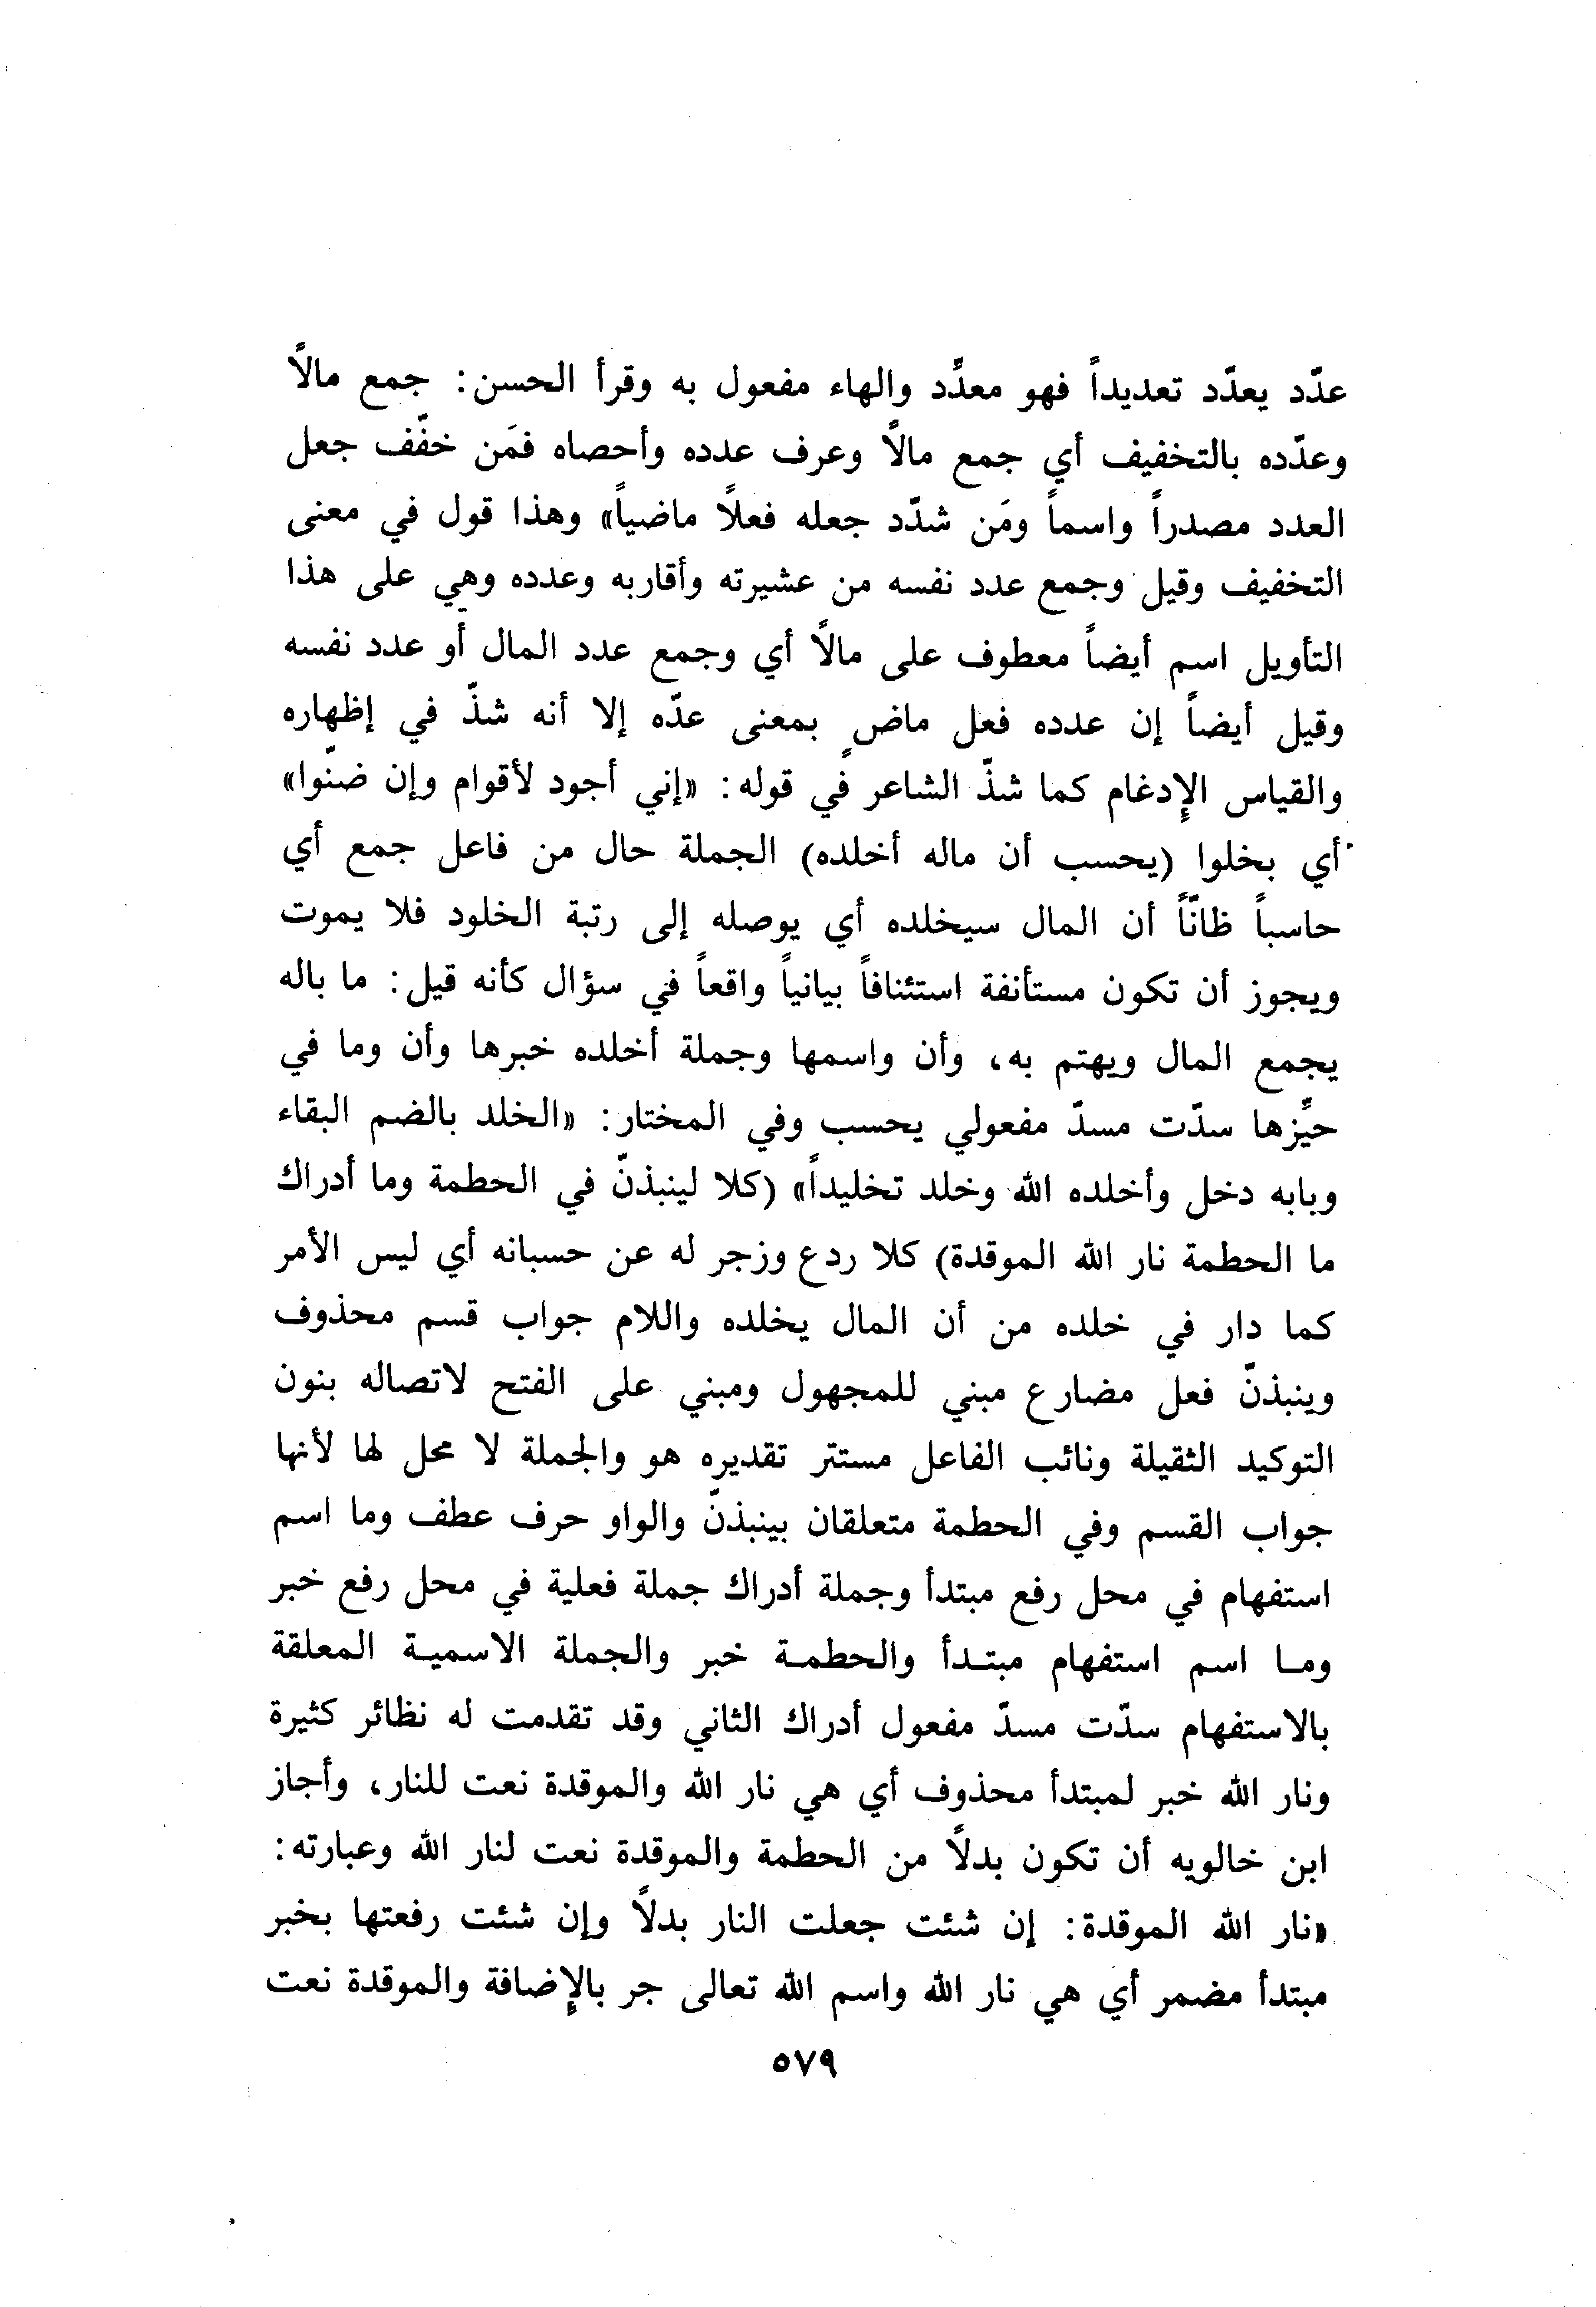 عدّد يعدّد تعديداً فهو معدِّد والهاء مفعول به وقرأ الحسن: جمع مالاً
وعدّده بالتخفيف أي جمع مالاً وعرف عدده وأحصاه فمَن خفّف جعل
العدد مصدراً واسماً ومَن شدّد جعله فعلاً ماضياً» وهذا قول في معنى
التخفيف وقيل وجمع عدد نفسه من عشيرته وأقاربه وعدده وهي على هذا
التأويل اسم أيضاً معطوف على مالاً أي وجمع عدد المال أو عدد نفسه
وقيل أيضاً إن عدده فعل ماضٍ بمعنى عدّه إلا أنه شذّ في إظهاره
والقياس الإدغام كما شذّ الشاعر في قوله: «إني أجود لأقوام وإن ضنّوا»
أي بخلوا (يحسب أن ماله أخلده) الجملة حال من فاعل جمع أي
حاسباً ظانّاً أن المال سيخلده أي يوصله إلى رتبة الخلود فلا يموت
ويجوز أن تكون مستأنفة استئنافاً بيانياً واقعاً في سؤال كأنه قيل: ما باله
يجمع المال ويهتم به، وأن واسمها وجملة أخلده خبرها وأن وما في
حيِّزها سدّت مسدّ مفعولي يحسب وفي المختار: «الخلد بالضم البقاء
وبابه دخل وأخلده الله وخلد تخليداً» (كلا لينبذنّ في الحطمة وما أدراك
ما الحطمة نار الله الموقدة) كلا ردع وزجر له عن حسبانه أي ليس الأمر
كما دار في خلده من أن المال يخلده واللام جواب قسم محذوف
وينبذنّ فعل مضارع مبني للمجهول ومبني على الفتح لاتصاله بنون
التوكيد الثقيلة ونائب الفاعل مستتر تقديره هو والجملة لا محل لها لأنها
جواب القسم وفي الحطمة متعلقان بينبذنّ والواو حرف عطف وما اسم
استفهام في محل رفع مبتدأ وجملة أدراك جملة فعلية في محل رفع خبر
وما اسم استفهام مبتدأ والحطمة خبر والجملة الاسمية المعلقة
بالاستفهام سدّت مسدّ مفعول أدراك الثاني وقد تقدمت له نظائر كثيرة
ونار الله خبر لمبتدأ محذوف أي هي نار الله والموقدة نعت للنار، وأجاز
ابن خالويه أن تكون بدلاً من الحطمة والموقدة نعت لنار الله وعبارته:
«نار الله الموقدة: إن شئت جعلت النار بدلاً وإن شئت رفعتها بخبر
مبتدأ مضمر أي هي نار الله واسم الله تعالى جر بالإضافة والموقدة نعت
٥٧٩